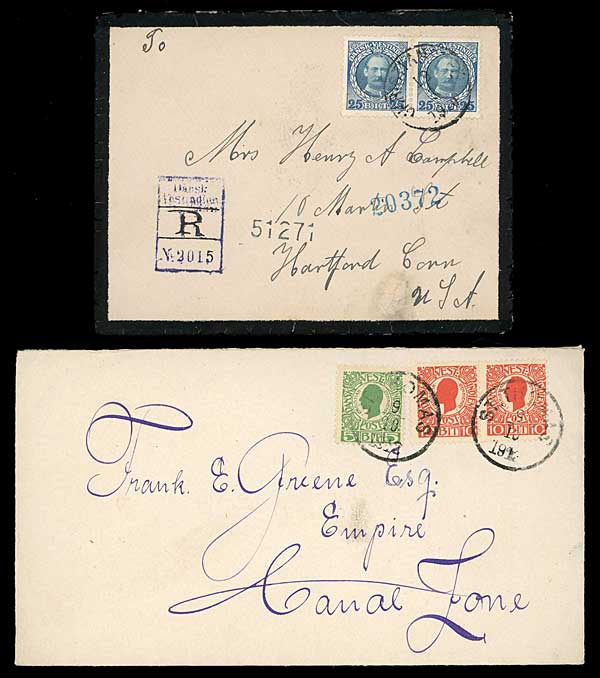 To
25 BIT 25
25 BIT 25
Mrs Henry A Campbell
10 Market St
20372
51271
Hartford Conn
U.S.A.
Dansk
Vestindien
R
No. 2015
5 BIT 5
BIT 10
10 BIT 10
ST. THOMAS
9
10
Frank. E. Greene Esq.
Empire
Canal Zone